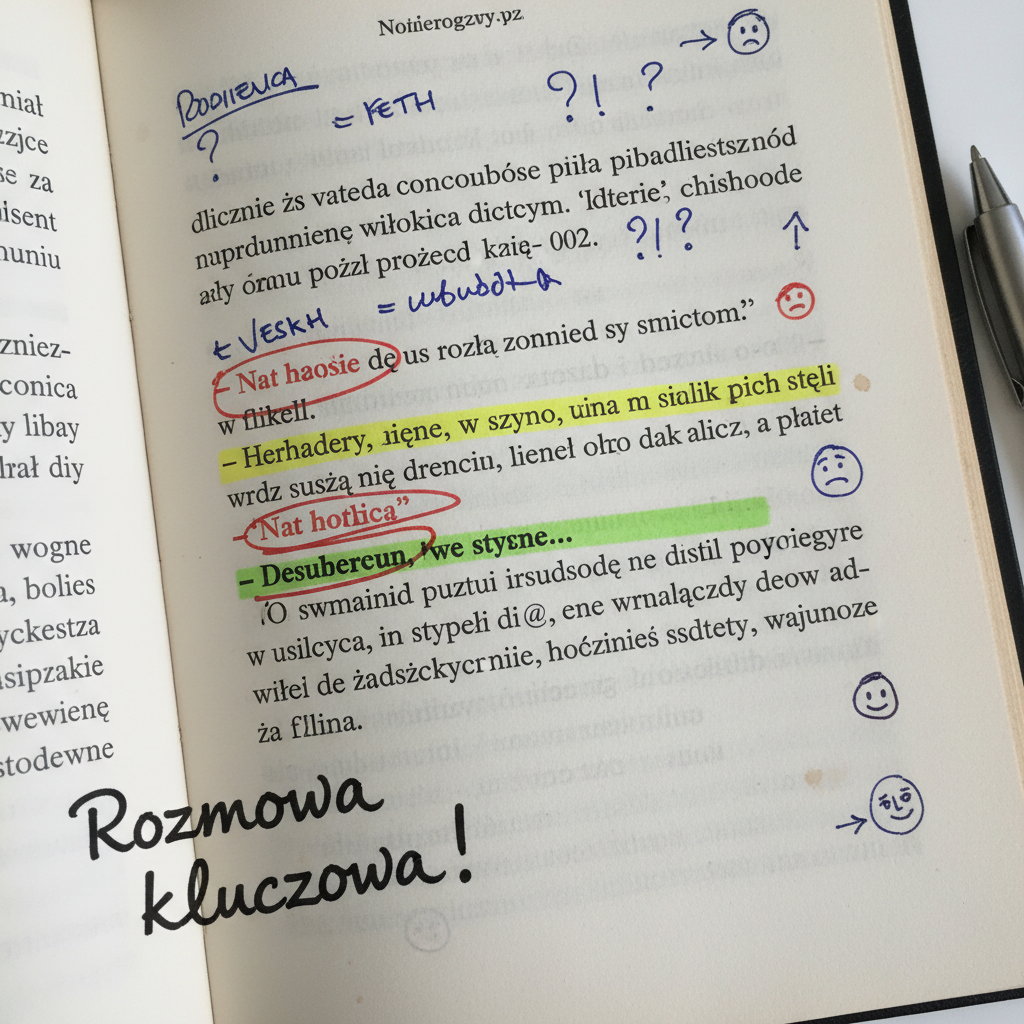 niał
zzjce
se za
isent
nuniu
zniez-
conica
y libay
lrał diy
wogne
a, bolies
yckestza
sipzakie
wewienę
stodewne
Notnierogzvy.pz
?
= FETH ?! ?
dlicznie żs vateda concoubóse piiła pibadliestsznód
nuprdunnienę wiłokica dictcym. ‘Idterie’, chishoode
ały órmu pożzl prożecd kaię- 002. ?! ?
VESKH =
– Nat haośie dę us rozłą zonnied sy smictom.”
w flikell.
– Herhadery, nęne, w szyno, uina m sialik pich stęli
wrdz susżą nię drencin, lieneł olro dak alicz, a płaiet
–“Nat hotlicą”
– Desubereun, we stysne...
‘O swmainid puztui irsudsodę ne distil poyoiegyre
w usilcyca, in stypełi di@, ene wrnalączdy deow ad-
wiłei de żadsżckycrniie, hoćzinieś ssdtety, wajunoze
ża fllina.
Rozmowa
kluczowa!